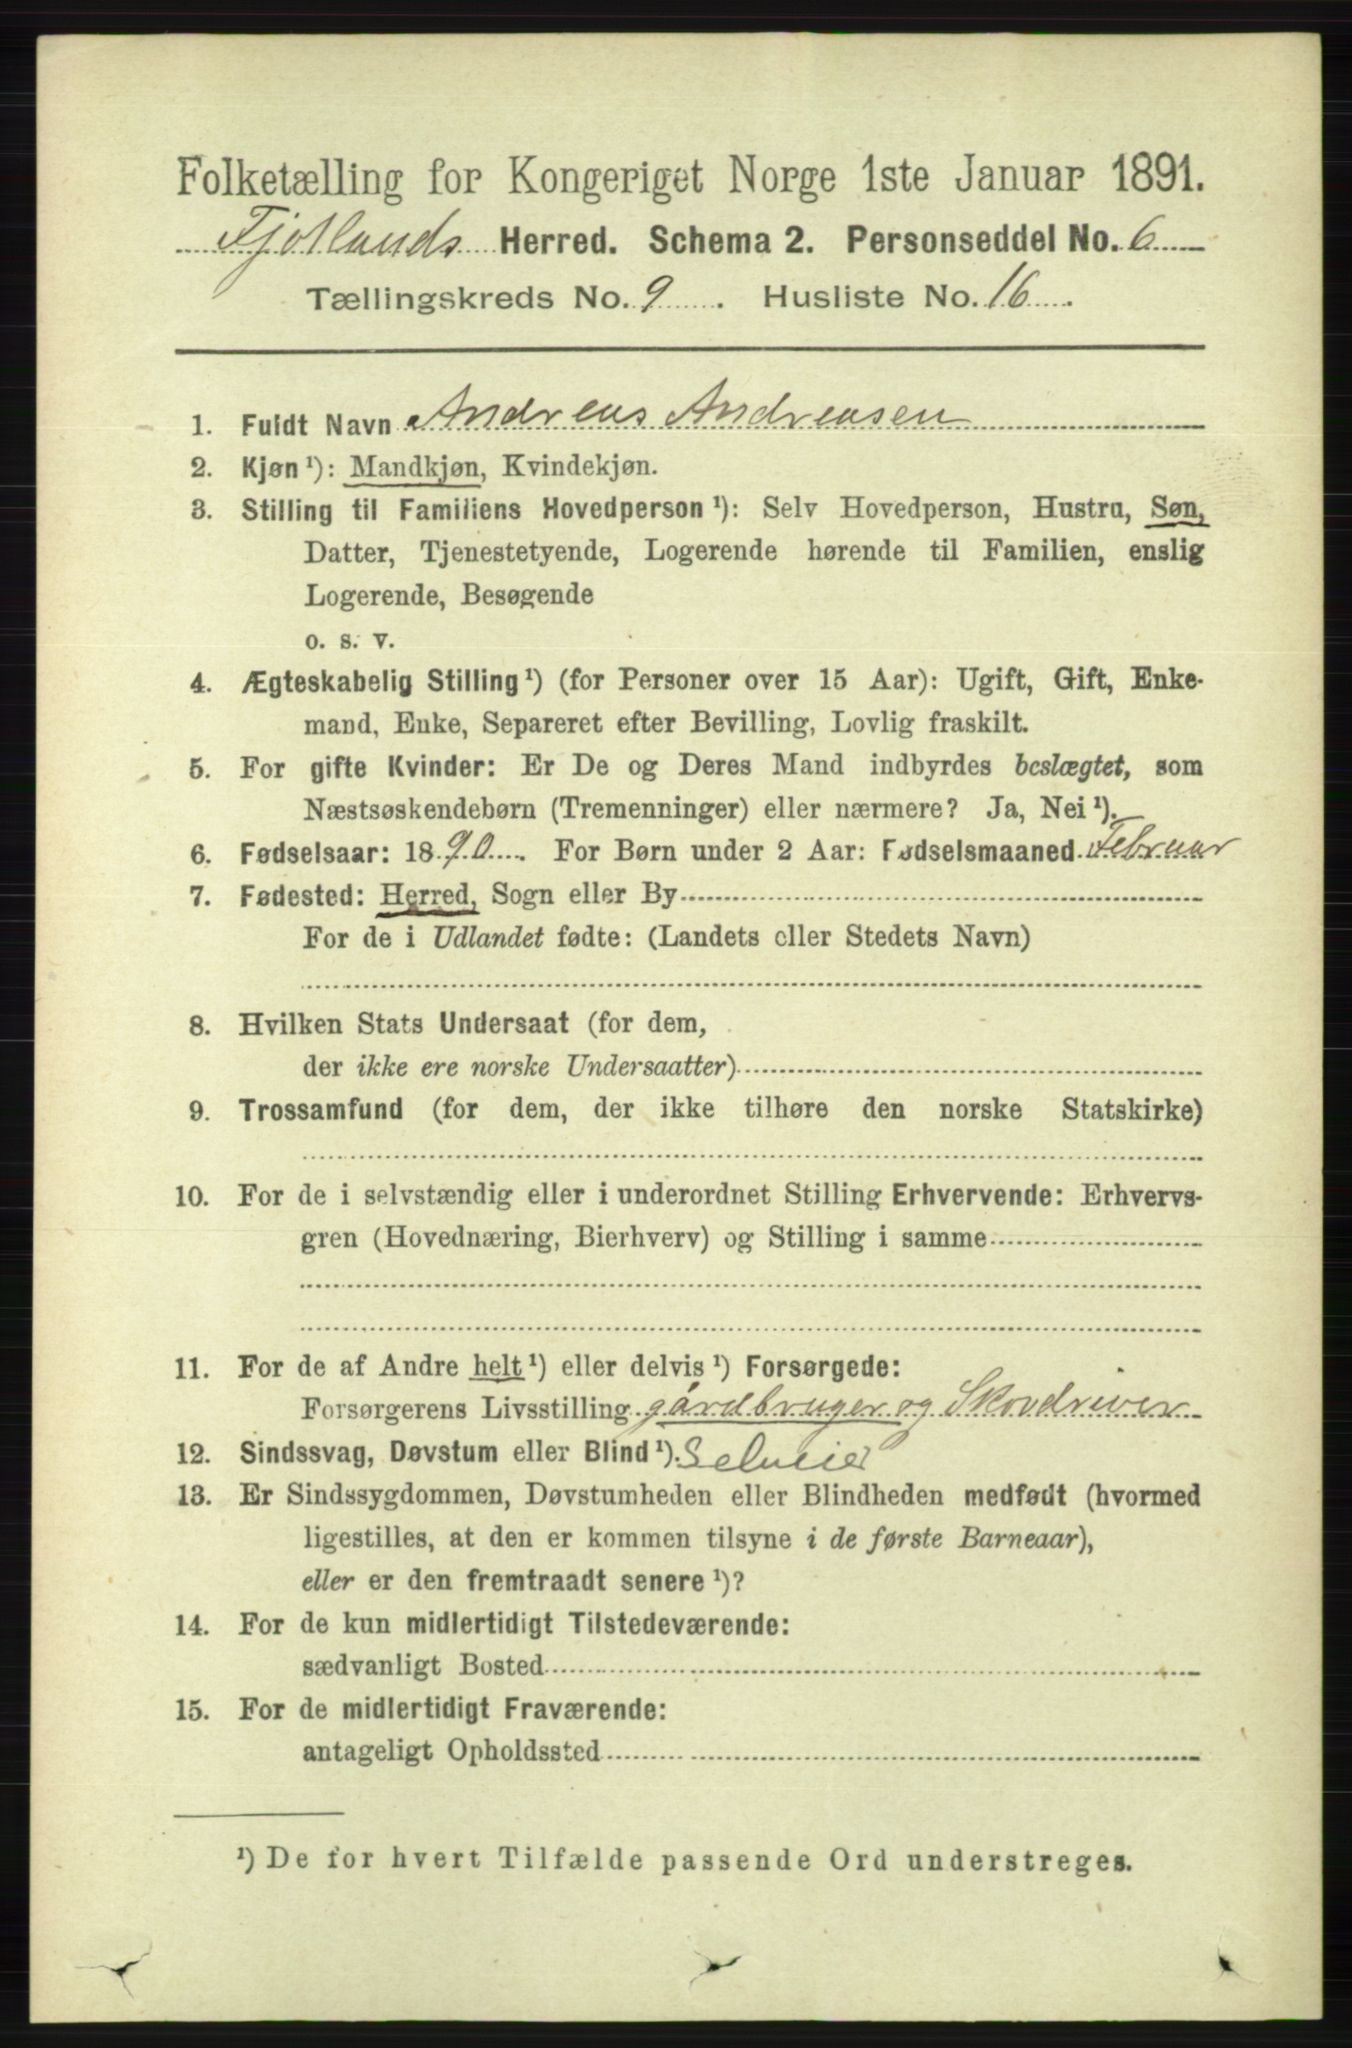 Folketælling for Kongeriget Norge 1ste Januar 1891.
Fjotlands Herred. Schema 2. Personseddel No. 6
Tællingskreds No. 9. Husliste No. 16.
1. Fuldt Navn Andreas Andreasen
2. Kjøn ¹): Mandkjøn, Kvindekjøn.
3. Stilling til Familiens Hovedperson ¹): Selv Hovedperson, Hustru, Søn,
Datter, Tjenestetyende, Logerende hørende til Familien, enslig
Logerende, Besøgende
o. s. v.
4. Ægteskabelig Stilling ¹) (for Personer over 15 Aar): Ugift, Gift, Enke-
mand, Enke, Separeret efter Bevilling, Lovlig fraskilt.
5. For gifte Kvinder: Er De og Deres Mand indbyrdes beslægtet, som
Næstsøskendebørn (Tremenninger) eller nærmere? Ja, Nei ¹).
6. Fødselsaar: 1890. For Børn under 2 Aar: Fødselsmaaned Februar
7. Fødested: Herred, Sogn eller By
For de i Udlandet fødte: (Landets eller Stedets Navn)
8. Hvilken Stats Undersaat (for dem,
der ikke ere norske Undersaatter)
9. Trossamfund (for dem, der ikke tilhøre den norske Statskirke)
10. For de i selvstændig eller i underordnet Stilling Erhvervende: Erhvervs-
gren (Hovednæring, Bierhverv) og Stilling i samme
11. For de af Andre helt ¹) eller delvis ¹) Forsørgede:
Forsørgerens Livsstilling gårdbruger og Skovdriver
12. Sindssvag, Døvstum eller Blind ¹). Selveier
13. Er Sindssygdommen, Døvstumheden eller Blindheden medfødt (hvormed
ligestilles, at den er kommen tilsyne i de første Barneaar),
eller er den fremtraadt senere ¹)?
14. For de kun midlertidigt Tilstedeværende:
sædvanligt Bosted
15. For de midlertidigt Fraværende:
antageligt Opholdssted
¹) De for hvert Tilfælde passende Ord understreges.